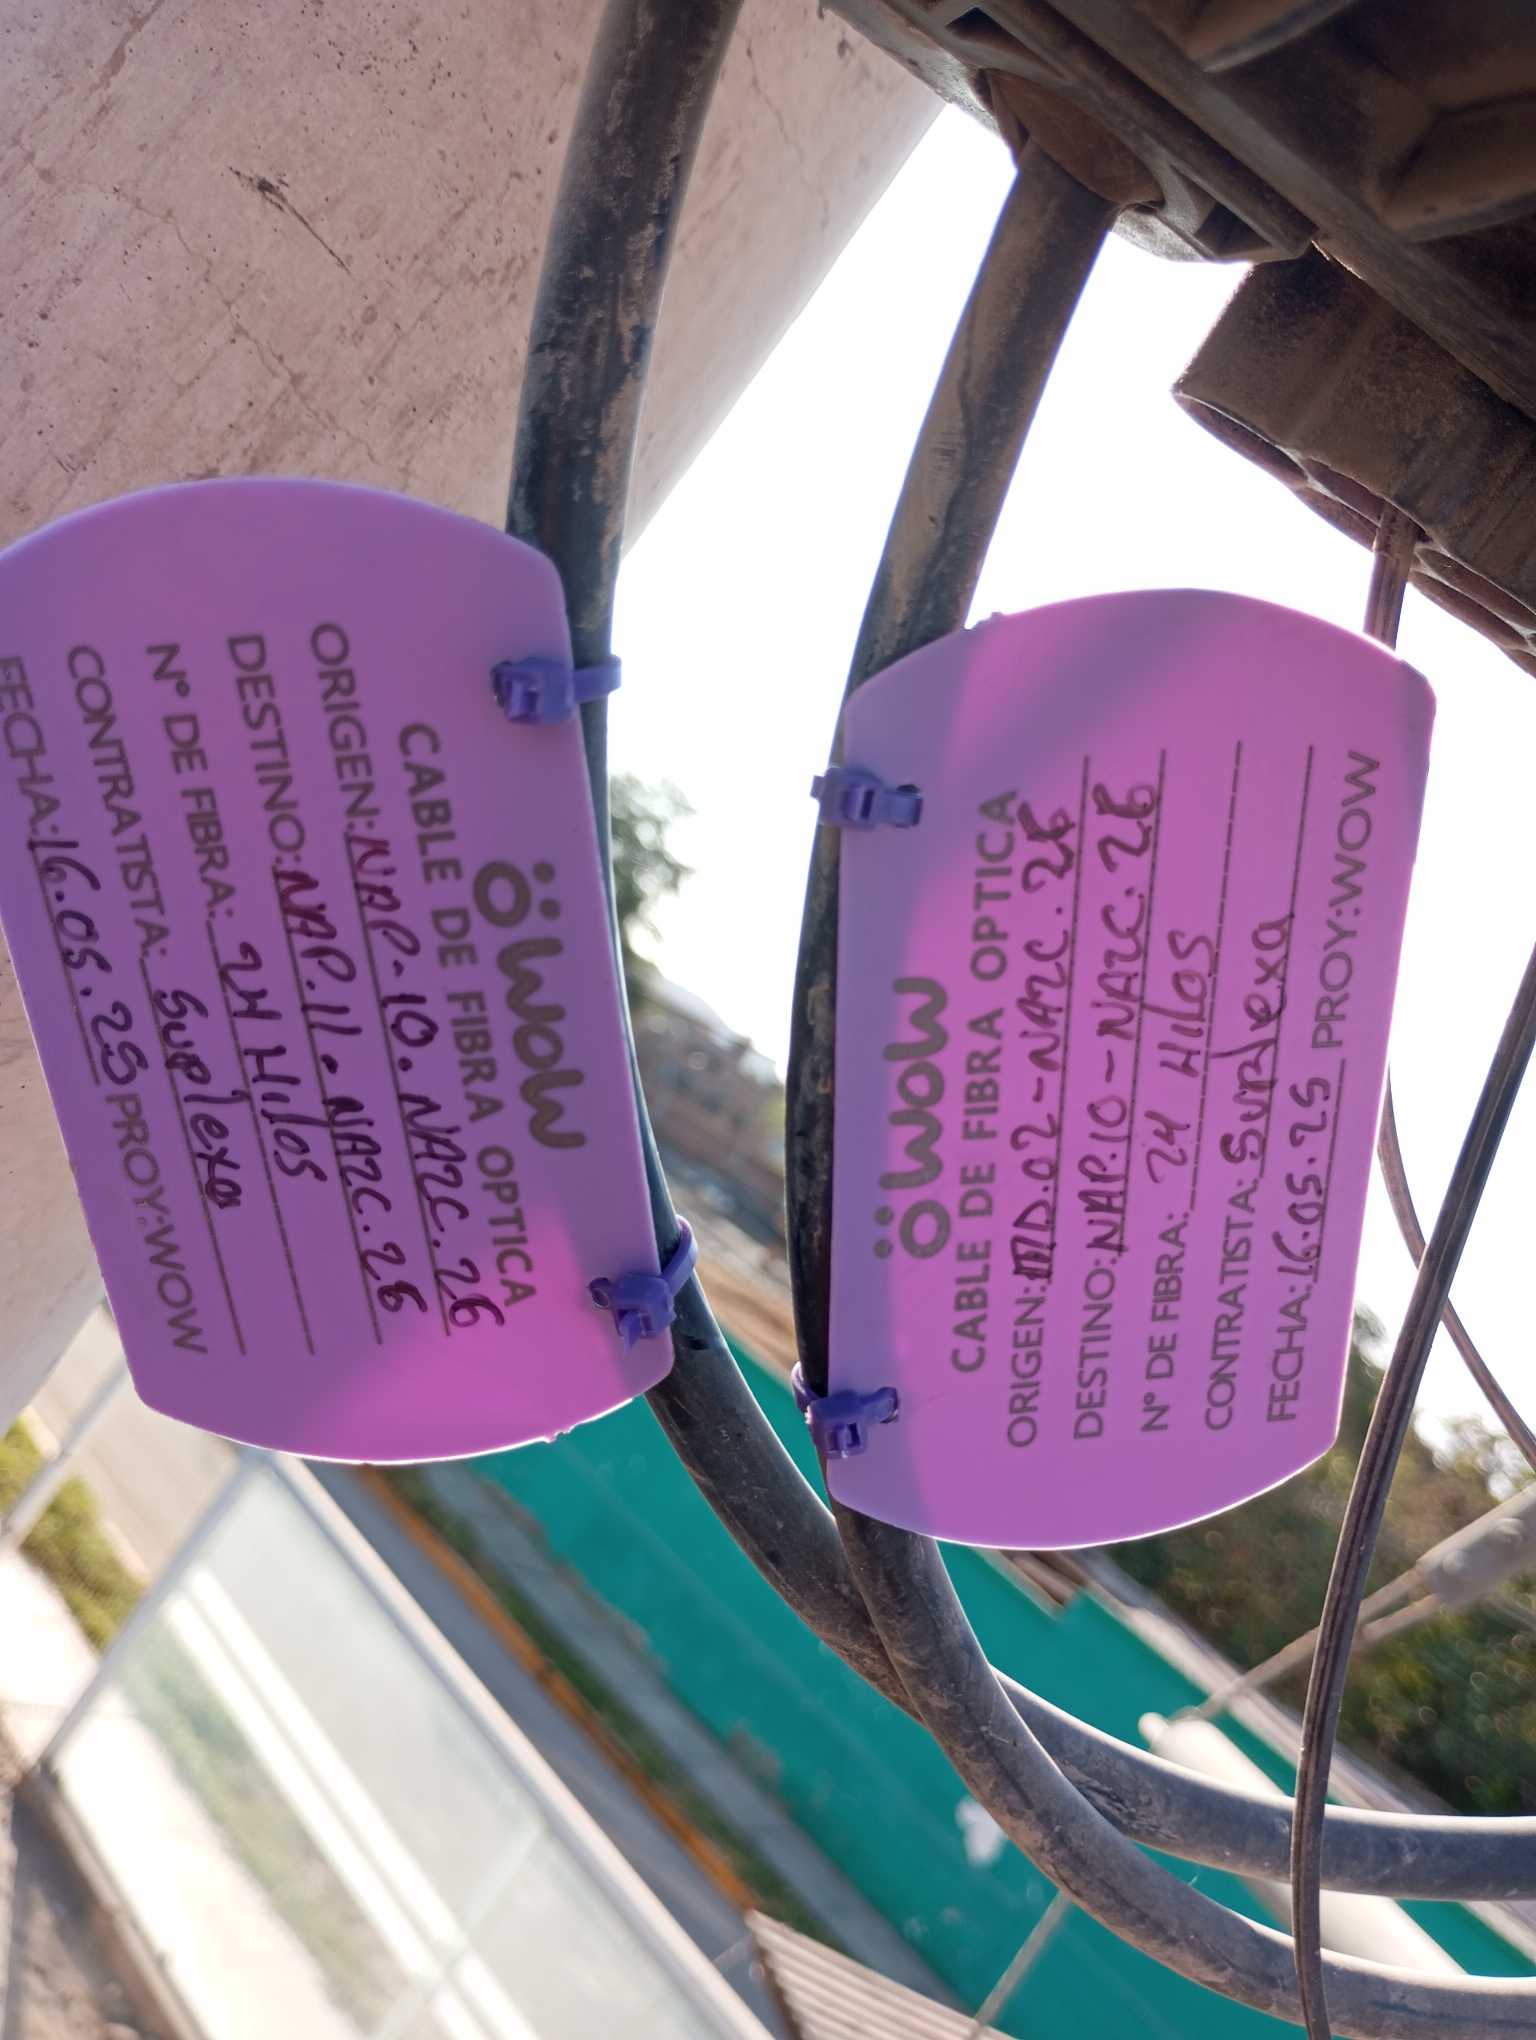 wow
CABLE DE FIBRA OPTICA
ORIGEN: NAP.10.NAZC.26
DESTINO: NAP.11.NAZC.26
N° DE FIBRA: 24 Hilos
CONTRATISTA: Suplexa
FECHA: 16.05.25 PROY:WOW
wow
CABLE DE FIBRA OPTICA
ORIGEN: MD.02-NAZC.26
DESTINO: NAP.10-NAZC.26
N° DE FIBRA: 24 Hilos
CONTRATISTA: Suplexa
FECHA: 16.05.25 PROY:WOW